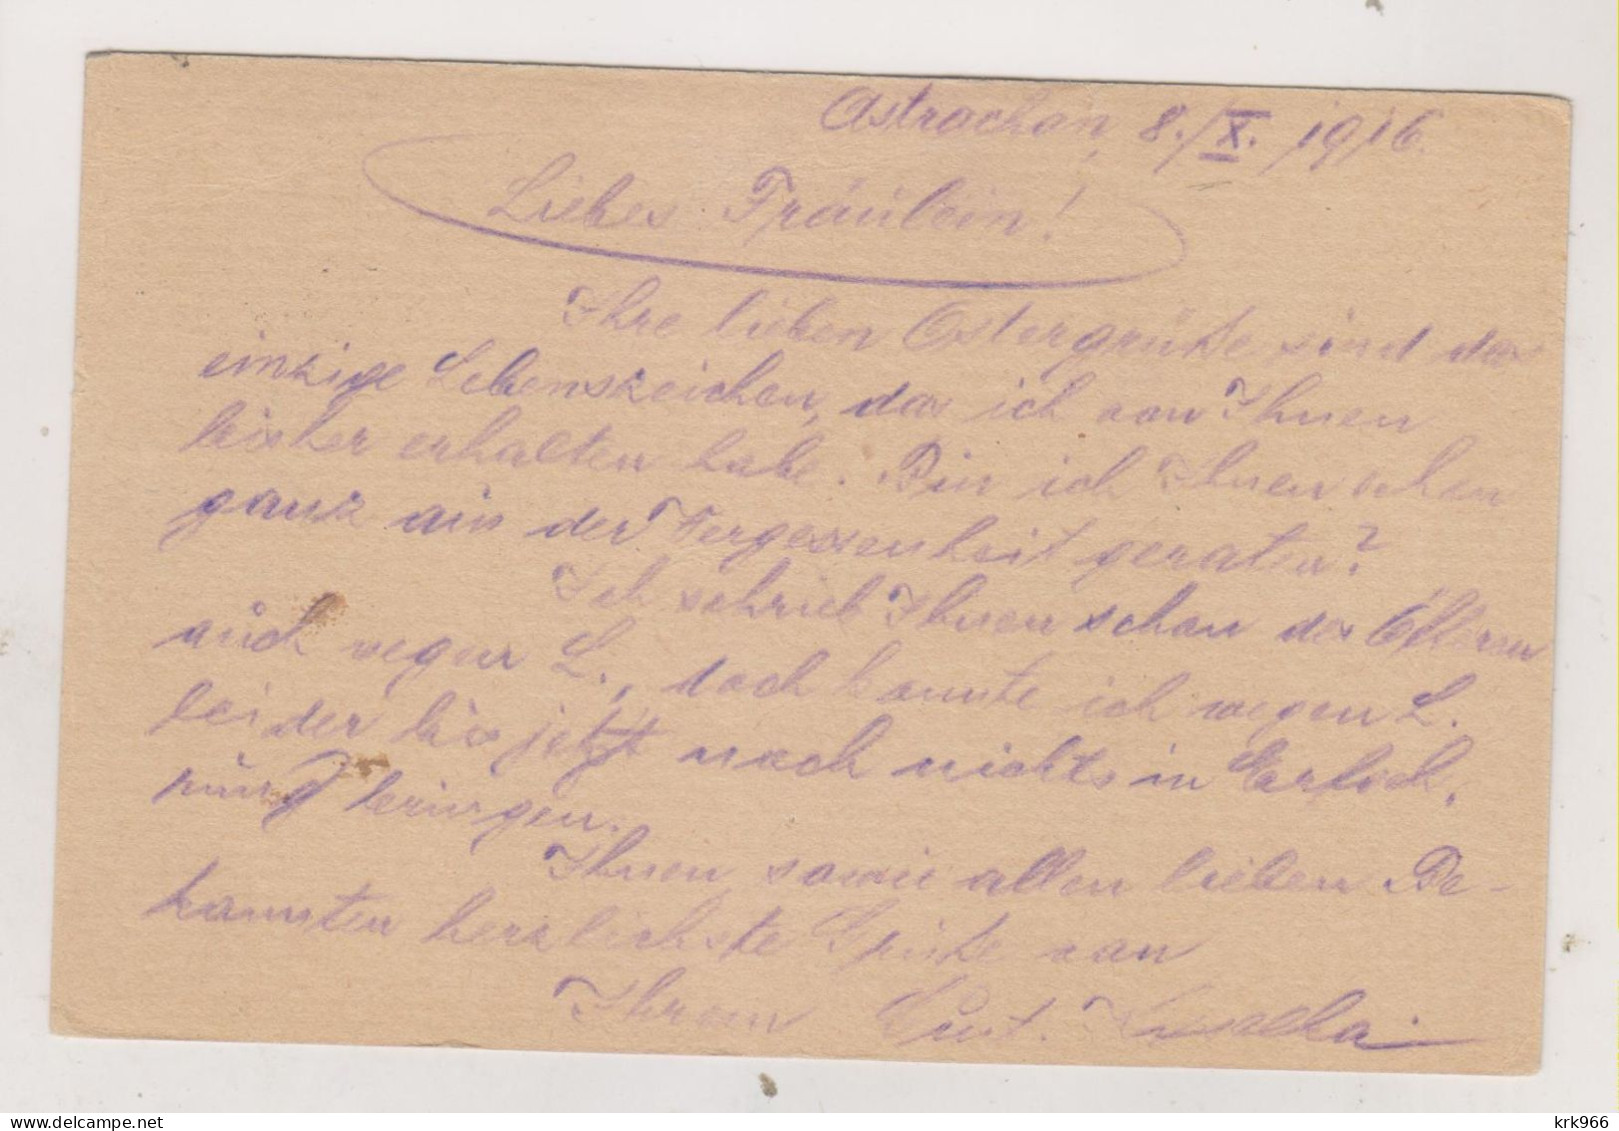 Astrachan, 8./X. 1916.
Liebes Fräulein!
Ihre lieben Ostergrüße sind das
einzige Lebenszeichen, das ich von Ihnen
bisher erhalten habe. Bin ich Ihnen schon
ganz in der Vergessenheit geraten?
Ich schrieb Ihnen schon des Öfteren
auch wegen L., doch konnte ich wegen L.
leider bis jetzt noch nichts in Erfah,
rung bringen.
Ihnen sowie allen lieben Be-
kannten herzlichste Grüße von
Ihrem
krk966